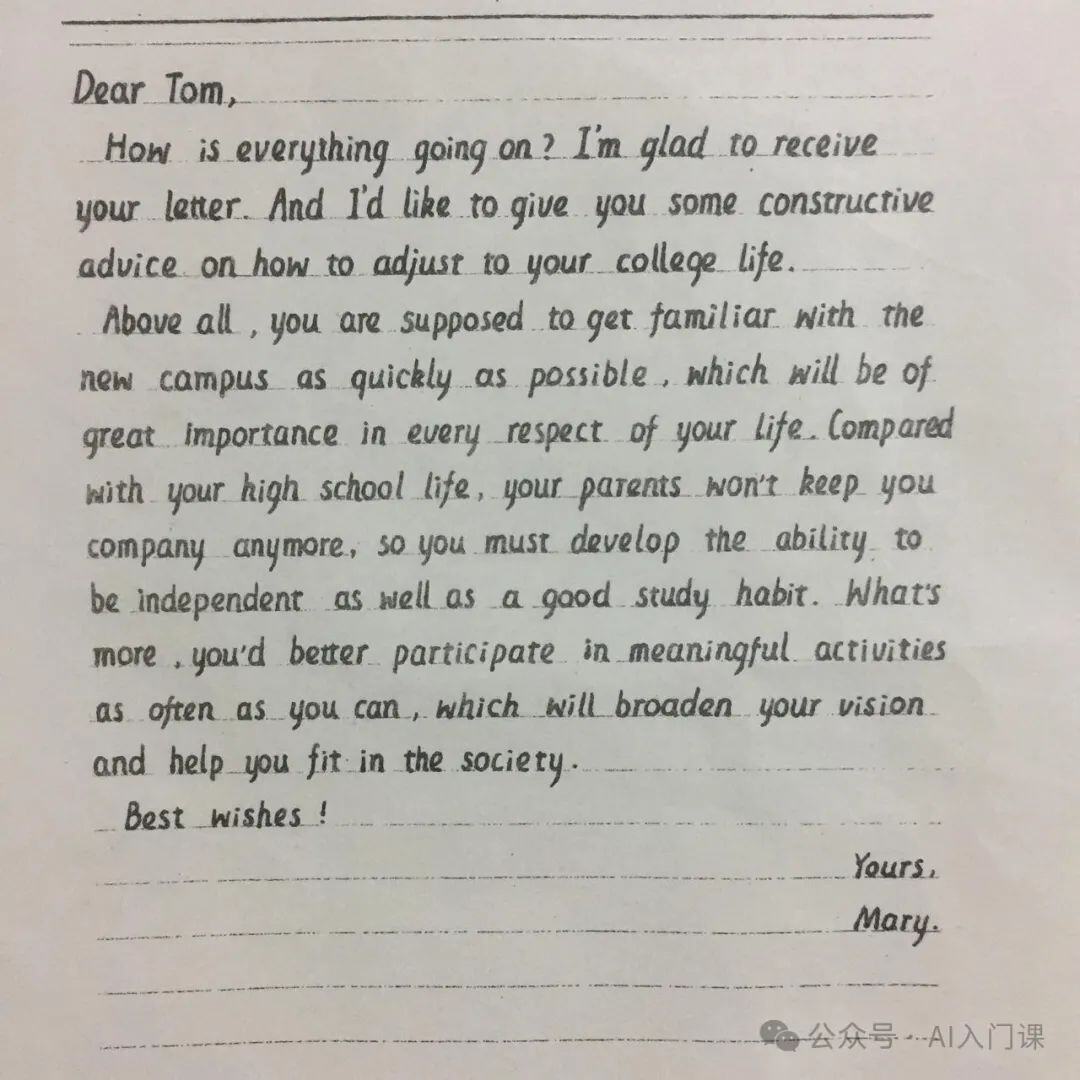 Dear Tom,
How is everything going on? I'm glad to receive
your letter. And I'd like to give you some constructive
advice on how to adjust to your college life.
Above all, you are supposed to get familiar with the
new campus as quickly as possible, which will be of
great importance in every respect of your life. Compared
with your high school life, your parents won't keep you
company anymore, so you must develop the ability to
be independent as well as a good study habit. What's
more, you'd better participate in meaningful activities
as often as you can, which will broaden your vision
and help you fit in the society.
Best wishes!
Yours,
Mary.
公众号·AI入门课